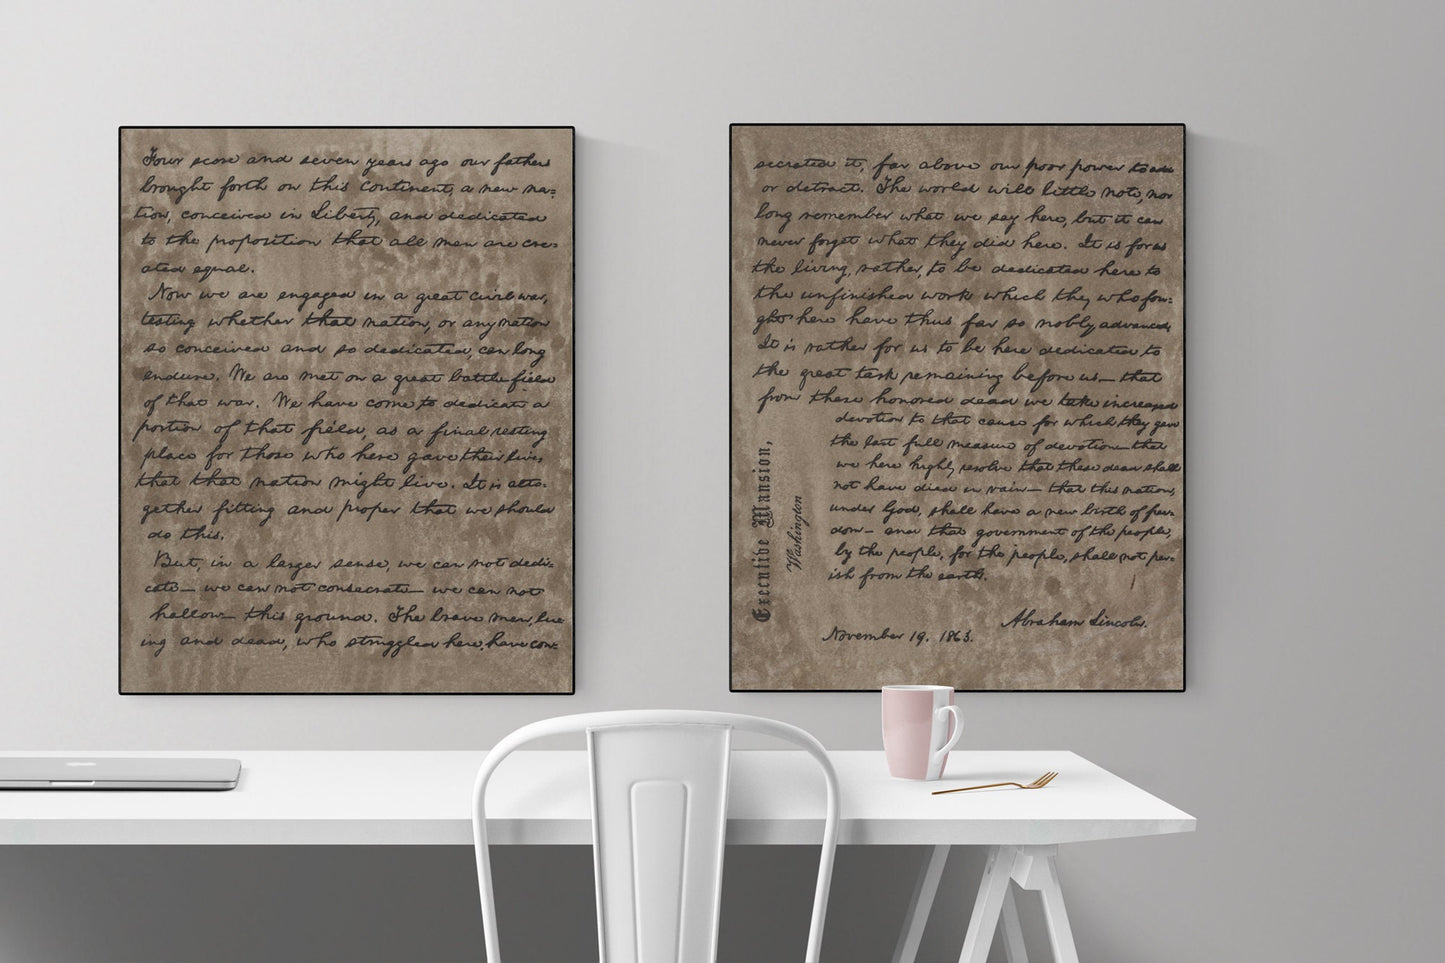 Four score and seven years ago our fathers
brought forth on this continent, a new na=
tion, conceived in Liberty, and dedicated
to the proposition that all men are cre=
ated equal.
Now we are engaged in a great civil war,
testing whether that nation, or any nation
so conceived and so dedicated, can long
endure. We are met on a great battle-field
of that war. We have come to dedicate a
portion of that field, as a final resting
place for those who here gave their lives,
that that nation might live. It is alto=
gether fitting and proper that we should
do this.
But, in a larger sense, we can not dedi=
cate— we can not consecrate— we can not
hallow— this ground. The brave men, liv=
ing and dead, who struggled here, have con=
secrated it, far above our poor power to add
or detract. The world will little note, nor
long remember what we say here, but it can
never forget what they did here. It is for us
the living, rather, to be dedicated here to
the unfinished work which they who fou=
ght here have thus far so nobly advanced.
It is rather for us to be here dedicated to
the great task remaining before us— that
from these honored dead we take increased
devotion to that cause for which they gave
the last full measure of devotion— that
we here highly resolve that these dead shall
not have died in vain— that this nation,
under God, shall have a new birth of free=
dom— and that government of the people,
by the people, for the people, shall not per=
ish from the earth.
Abraham Lincoln.
November 19, 1863.
Executive Mansion,
Washington